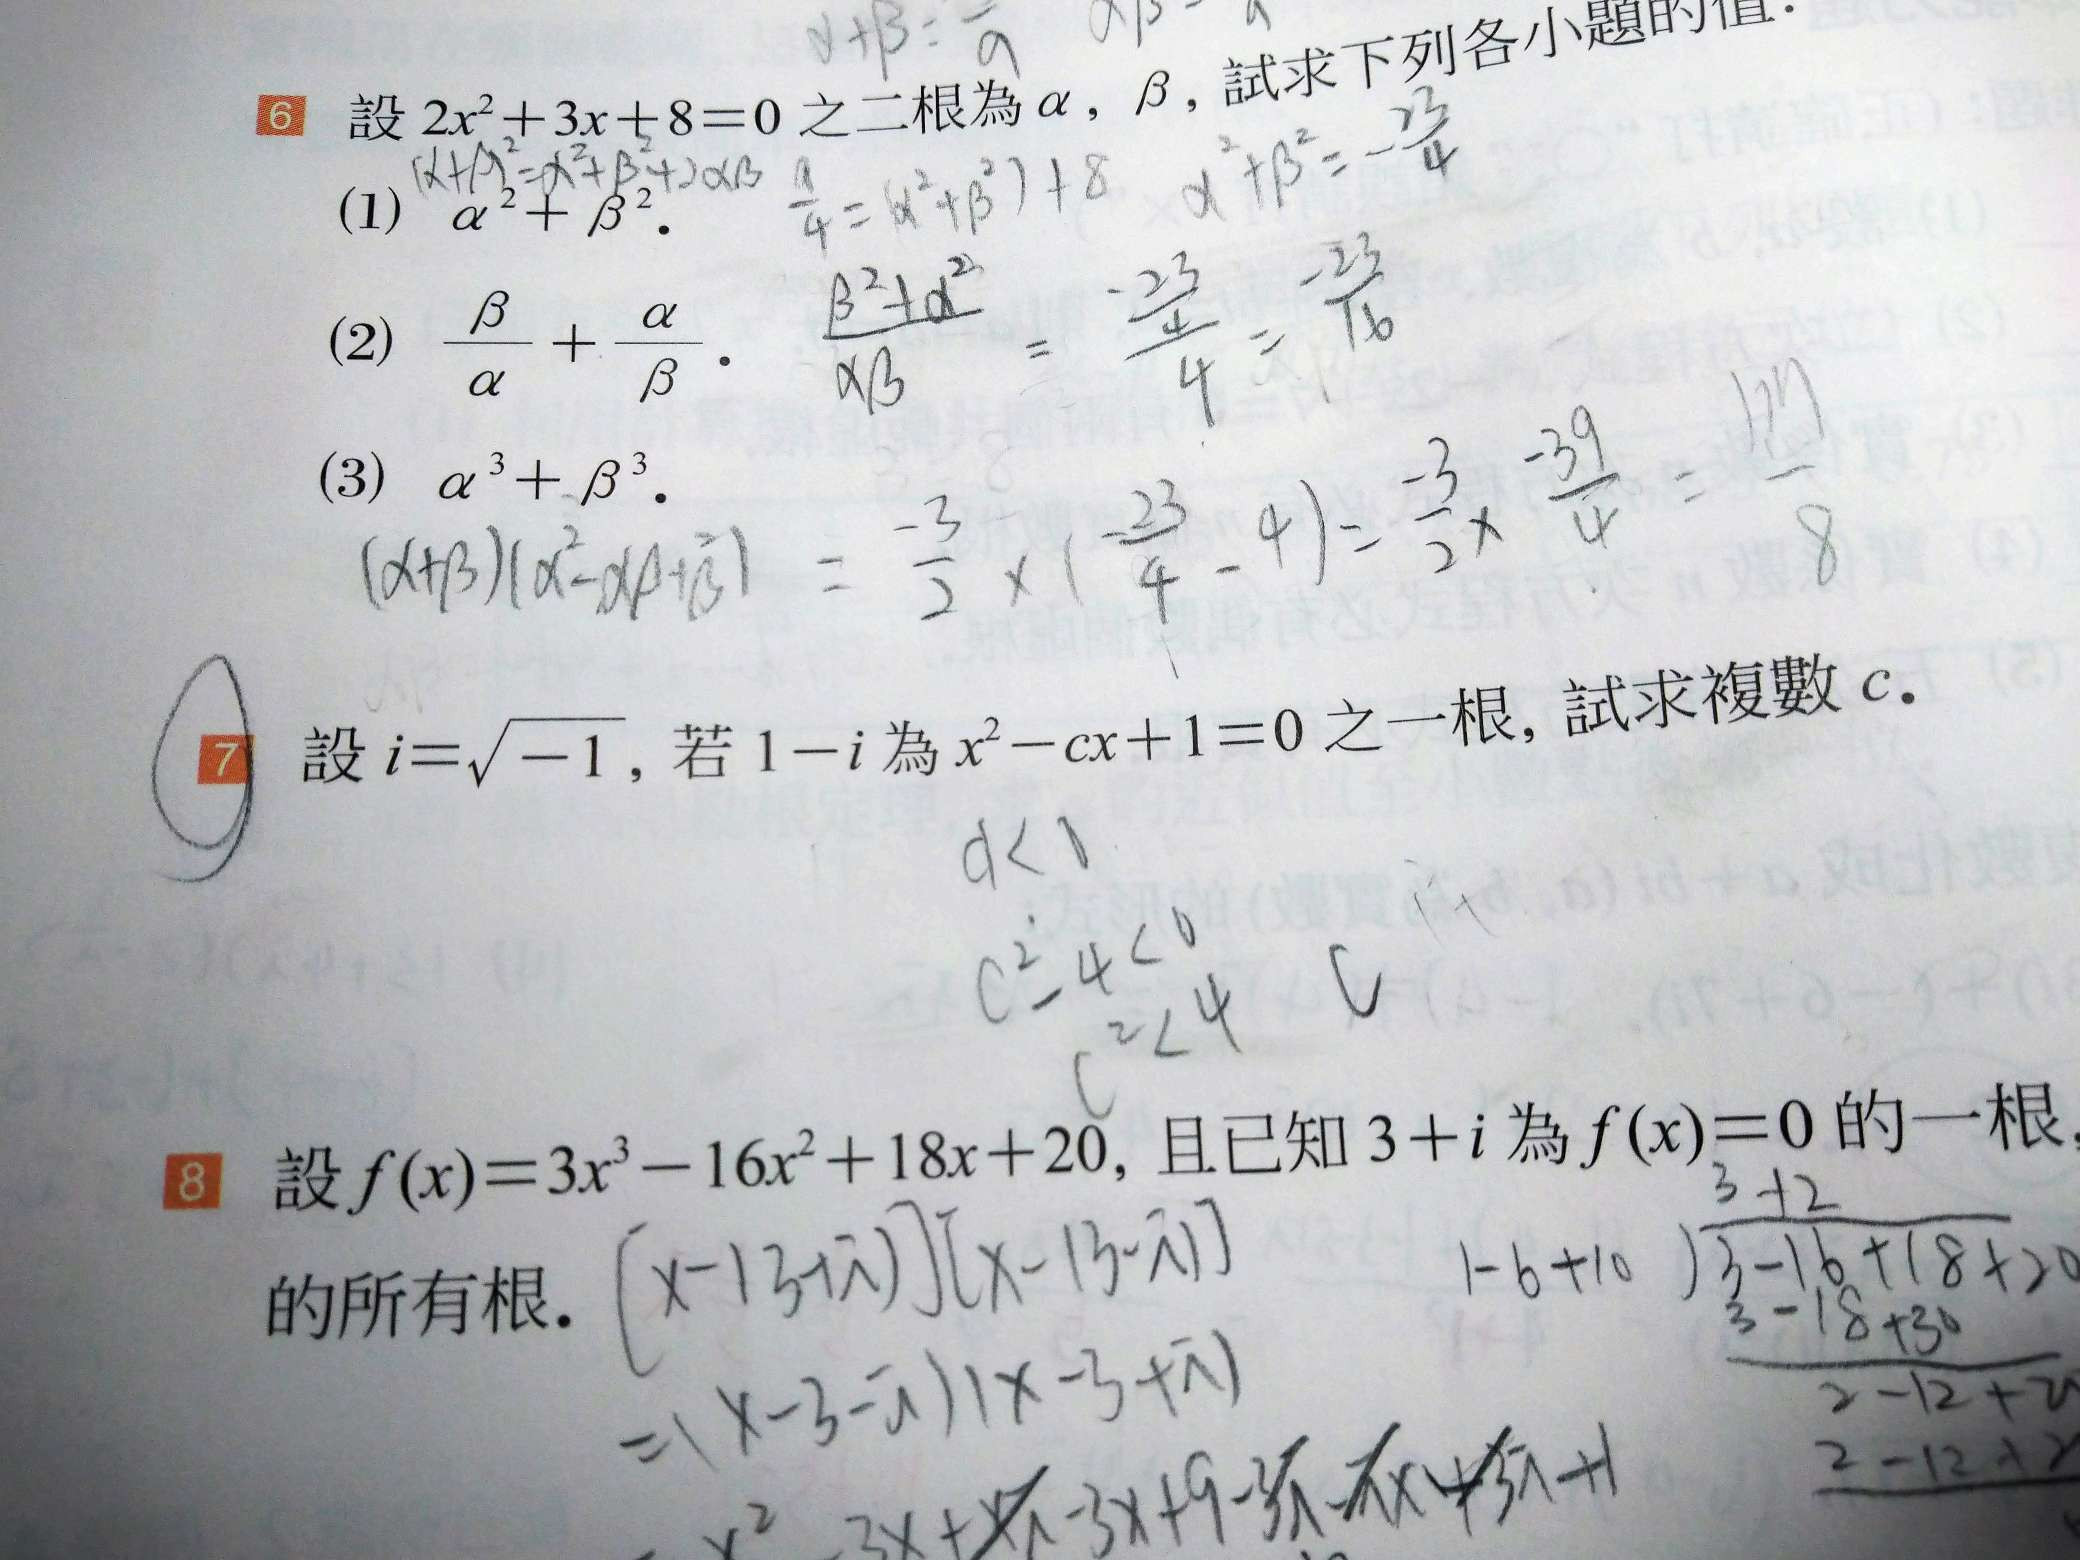 α+β= -/a αβ= /a
6 設 2x²+3x+8=0 之二根為 α, β, 試求下列各小題的值.
(α+β)²=α²+β²+2αβ 9/4=(α²+β²)+8 α²+β²=-23/4
(1) α²+β².
(2) β/α + α/β. (β²+α²)/αβ = (-23/4)/4 = -23/16
(3) α³+β³.
(α+β)(α²-αβ+β²) = -3/2 × (-23/4 - 4) = -3/2 × -39/4 = 117/8
7 設 i=√-1, 若 1-i 為 x²-cx+1=0 之一根, 試求複數 c.
d<0
c²-4<0 C
c²<4
8 設 f(x)=3x³-16x²+18x+20, 且已知 3+i 為 f(x)=0 的一根,
的所有根. [x-(3+i)][x-(3-i)]
=(x-3-i)(x-3+i)
= x²-3x+xi-3x+9-3i-ix+3i+1
3+2
1-6+10 )3-16+18+20
3-18+30
2-12+20
2-12+2